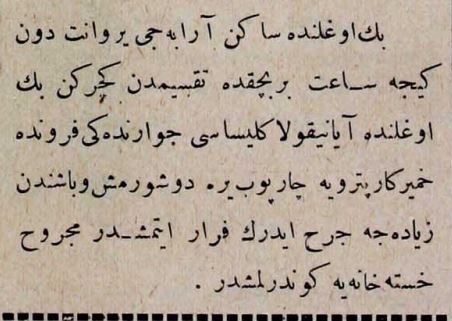 بك اوغلنده ساكن آرابه جی یروانت دون
كیجه ساعت بربچقده تقسیمدن كچركن بك
اوغلنده آیانیقولا كلیساسی جوارنده كی فرونده
خمیركار پترویه چارپوب یره دوشورمش و باشندن
زیاده جه جرح ایدرك فرار ایتمشدر مجروح
خسته خانه یه كوندرلمشدر .